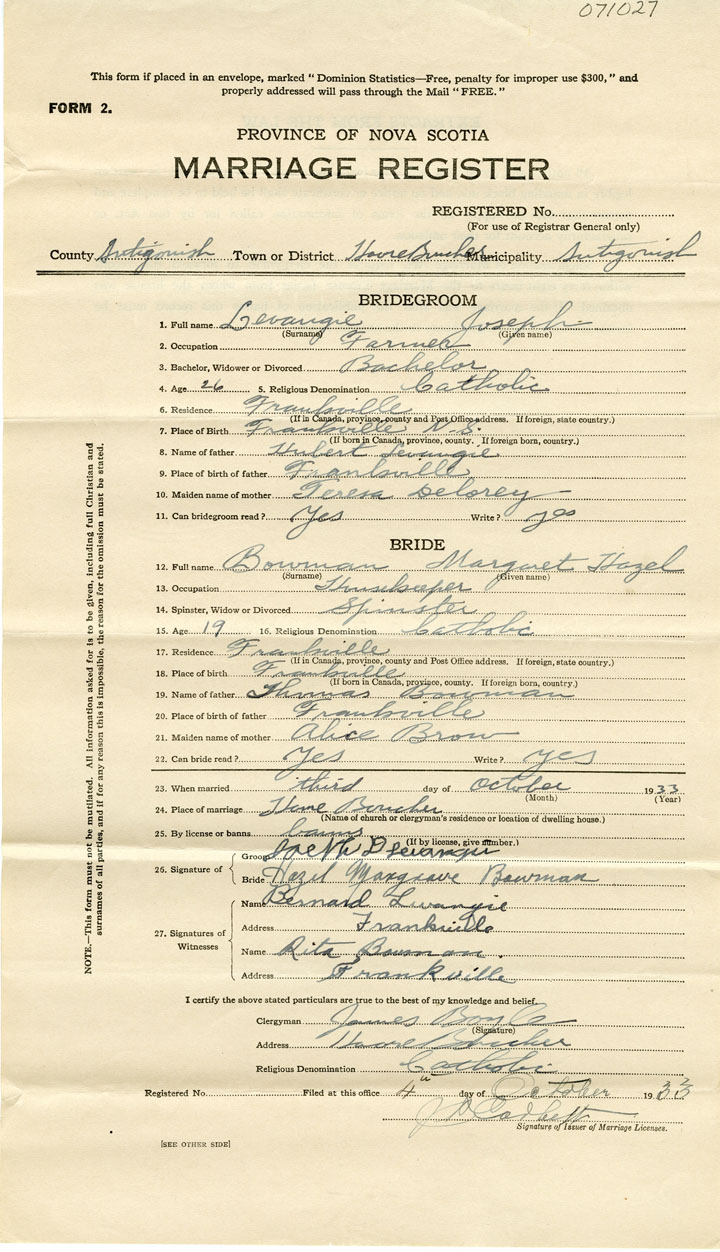 071027
This form if placed in an envelope, marked "Dominion Statistics—Free, penalty for improper use $300," and
properly addressed will pass through the Mail "FREE."
FORM 2.
PROVINCE OF NOVA SCOTIA
MARRIAGE REGISTER
REGISTERED No.
(For use of Registrar General only)
County Antigonish Town or District Havre Boucher Municipality Antigonish
BRIDEGROOM
1. Full name Levangie Joseph
(Surname) (Given name)
2. Occupation Farmer
3. Bachelor, Widower or Divorced Bachelor
4. Age 26 5. Religious Denomination Catholic
6. Residence Frankville
(If in Canada, province, county and Post Office address. If foreign, state country.)
7. Place of Birth Frankville N.S.
(If born in Canada, province, county. If foreign born, country.)
8. Name of father Hubert Levangie
9. Place of birth of father Frankville
10. Maiden name of mother Teresa Delorey
11. Can bridegroom read? Yes Write? yes
BRIDE
12. Full name Bowman Margaret Hazel
(Surname) (Given name)
13. Occupation Housekeeper
14. Spinster, Widow or Divorced Spinster
15. Age 19 16. Religious Denomination Catholic
17. Residence Frankville
(If in Canada, province, county and Post Office address. If foreign, state country.)
18. Place of birth Frankville
(If born in Canada, province, county. If foreign born, country.)
19. Name of father Thomas Bowman
20. Place of birth of father Frankville
21. Maiden name of mother Alice Brow
22. Can bride read? Yes Write? yes
23. When married third day of October 1933
(Month) (Year)
24. Place of marriage Havre Boucher
(Name of church or clergyman's residence or location of dwelling house.)
25. By license or banns banns
(If by license, give number.)
26. Signature of
Groom Levangie
Bride Hazel Margrave Bowman
27. Signatures of Witnesses
Name Bernard Levangie
Address Frankville
Name Rita Bowman.
Address Frankville
I certify the above stated particulars are true to the best of my knowledge and belief.
Clergyman James Boyle
(Signature)
Address Havre Boucher
Religious Denomination Catholic
Registered No. Filed at this office 4th day of October 1933
Signature of Issuer of Marriage Licenses.
[SEE OTHER SIDE]
NOTE.—This form must not be mutilated. All information asked for is to be given, including full Christian and
surnames of all parties, and if for any reason this is impossible, the reason for the omission must be stated.